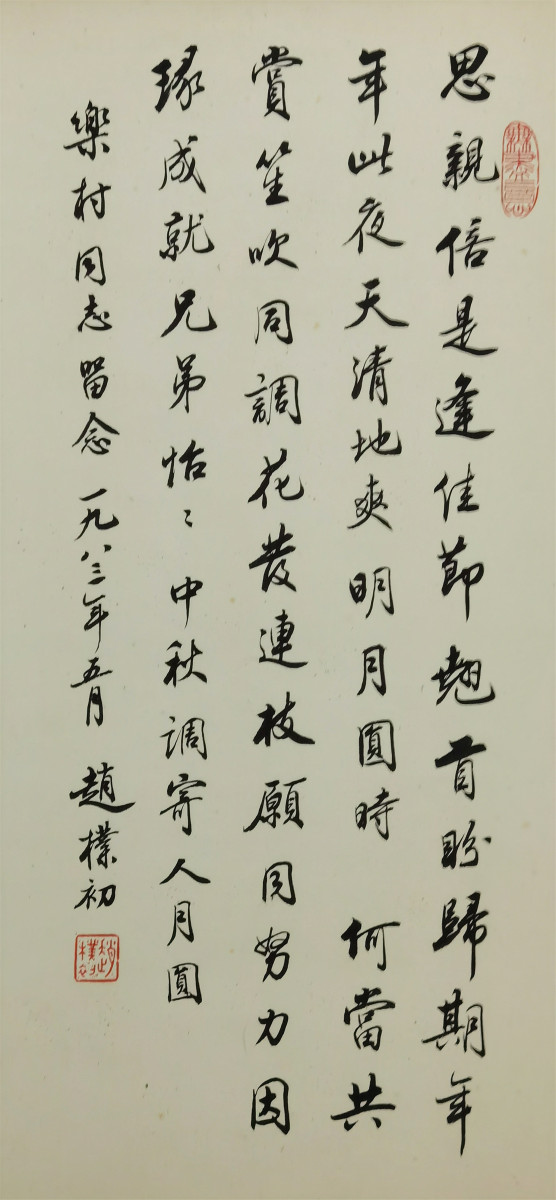 思親倍是逢佳節翹首盼歸期年
年此夜天清地爽明月圓時 何當共
賞笙吹同調花發連枝願同努力因
緣成就兄弟怡〻中秋調寄人月圓
樂村同志留念 一九八三年五月 趙樸初
趙樸初